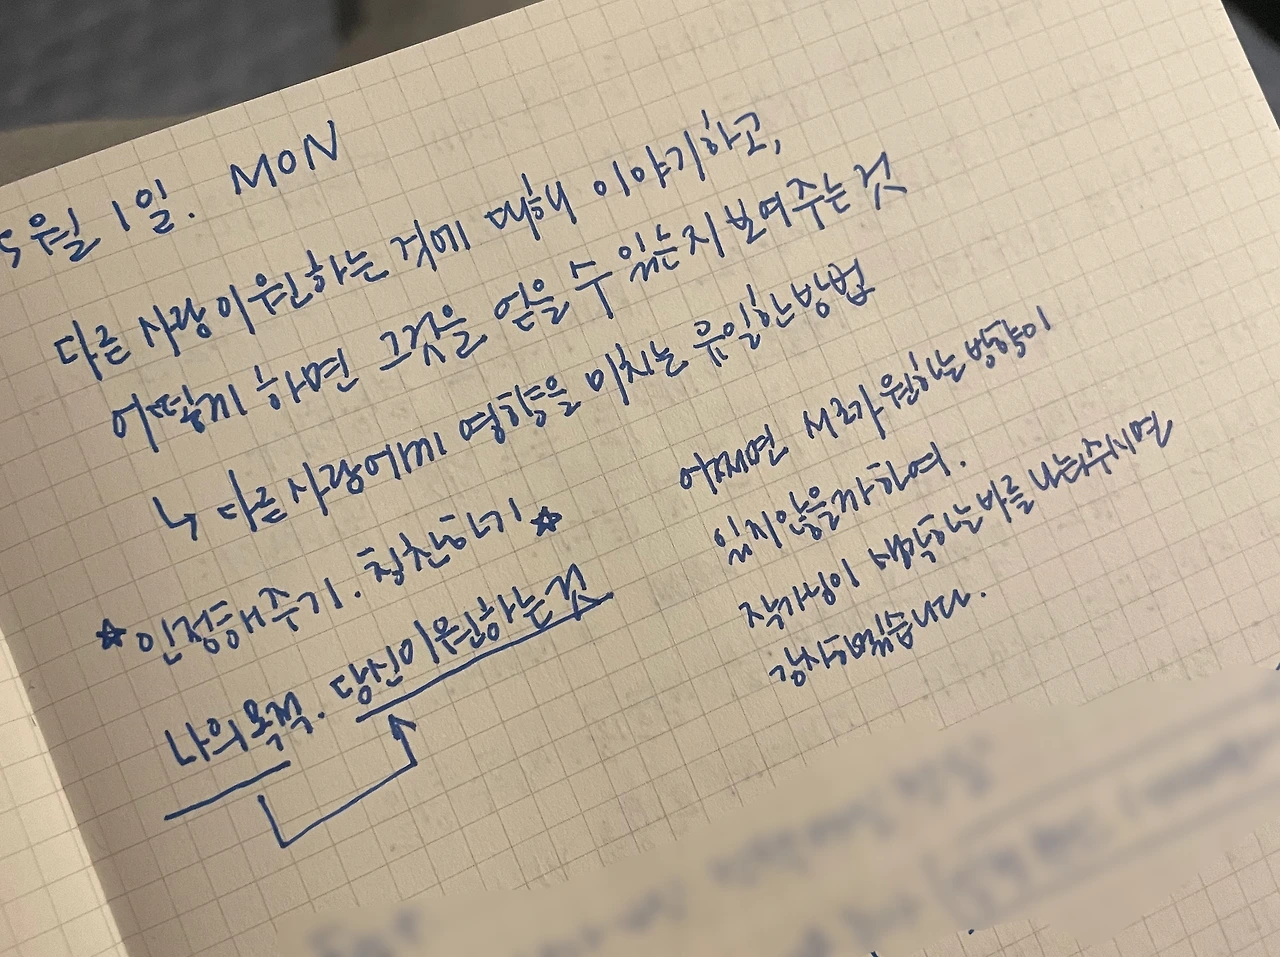 5월 1일. MON
다른 사람이 원하는 것에 대해 이야기하고,
어떻게 하면 그것을 얻을 수 있는지 보여주는 것
↳ 다른 사람에게 영향을 미치는 유일한 방법
☆ 인정해주기. 칭찬하기 ☆
나의 목적. 당신이 원하는 것
어쩌면 서로가 원하는 방향이
있지 않을까 하여.
작가님이 생각하는 바를 나눠주시면
감사하겠습니다.